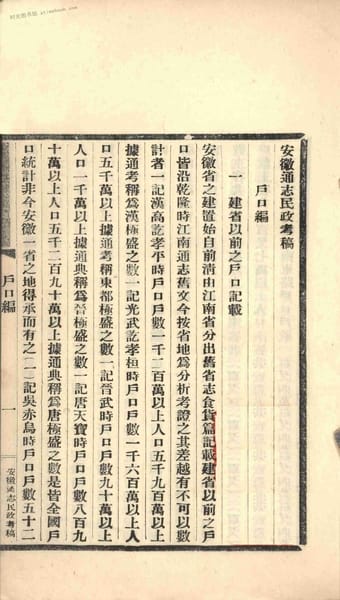 安徽通志民政考稿
戶口編
一 建省以前之戶口記載
安徽省之建置始自前清由江南省分出舊省志食貨篇記載建省以前之戶
口皆沿乾隆時江南通志舊文今按省地爲分析考證之其差越有不可以數
計者一記漢高訖孝平時戶口戶數一千二百萬以上人口五千九百萬以上
據通考稱爲漢極盛之數一記光武訖孝桓時戶口戶數一千六百萬以上人
口五千萬以上據通考稱東都極盛之數一記晉武時戶口戶數九十萬以上
人口一千萬以上據通典稱爲晉極盛之數一記唐天寶時戶口戶數八百九
十萬以上人口五千二百九十萬以上據通典稱爲唐極盛之數是皆全國戶
口統計非今安徽一省之地得承而有之(一)記吳赤烏時戶口戶數五十二
戶口編
一
安徽通志民政考稿